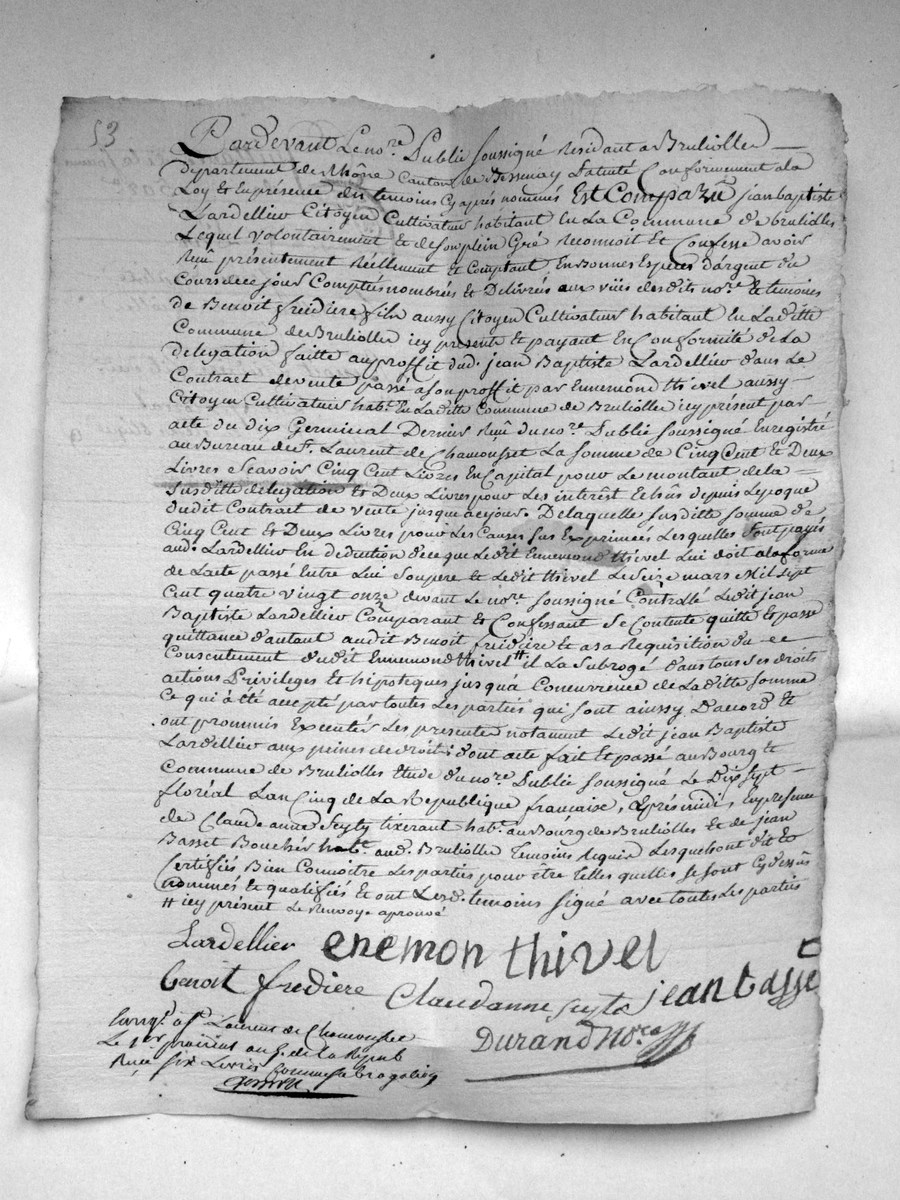 53
Pardevant Le no.re Public Soussigné Residant a Brulliolles
departement du Rhône Canton de Bessenay Patenté Conformement a la
Loy et En presence des temoins Cy apres nommés Est Comparu jean baptiste
Lardellier Citoyen Cultivateur habitant En La Commune de brulliolles
Lequel volontairement et de son plein Gré Reconnoit et Confesse avoir
Reçu présentement Réellement et Comptant, En Bonnes Especes d'argent du
Cours de ce jour Comptés nombrés et Delivrés aux vües desdits no.re et temoins
de Benoit freidiere fils aussy Citoyen Cultivateur habitant En Laditte
Commune de Brulliolles icy présente et payant En Conformité de La
delegation faitte au proffit dud. jean Baptiste Lardellier dans Le
Contract de vente passé a son proffit par Ennemond thivel aussy
Citoyen Cultivateur hab.t En Laditte Commune de Brulliolles icy présent par
acte du dix Germinal Dernier Reçu du no.re Public soussigné Enregistré
au Bureau de S.t Laurent de Chamousset La somme de Cinq Cent et Deux
Livres Scavoir Cinq Cent Livres En Capital pour Le montant de la
Susditte délégation et Deux Livres pour Les interêt Echûs depuis Lepoque
dudit Contract de vente jusqu'a ce jour. De laquelle susditte somme de
Cinq Cent et Deux Livres pour Les Causes sus Exprimées Lesquelles sont payés
aud. Lardellier En deduction de ce que Ledit Ennemond thivel Lui doit a la forme
de Lacte passé Entre Lui Son pere et Ledit thivel Le Seize mars Mil Sept
Cent quatre vingt onze devant Le no.re Soussigné Controllé Ledit jean
Baptiste Lardellier Comparant et Confessant Se Contente quitte et passe
quittance d'autant audit Benoit freidiere et a sa Requisition du
Consentement dudit Ennemond thivel # il La Subrogé dans tous ses droits
actions Privileges et hipoteques jusqu'a Concurrence de Laditte somme
Ce qui a été accepté par toutes Les parties qui sont ainssy D'accord et
ont prommis Executer Les presente notament Ledit jean Baptiste
Lardellier aux peines de droit : dont acte fait et passé au Bourg et
Commune de Brulliolles Etude du no.re Public Soussigné Le Dix Sept
floréal Lan Cinq de La Republique francaise, après midi, En presence
de Claude anne Seyty tixerant hab.t au Bourg de Brulliolles et de jean
Basset Boucher hab.t aud. Brulliolles Temoins Requis Lesquels ont dit et
Certifiés Bien Connoitre Les parties pour etre telles quelles se sont Cy dessus
nommés et qualifiés et ont Lesd. temoins signé avec toutes Les parties
# icy présent Le Renvoy aprouvé
Lardellier enemon thivel
benoit fredière Claudanne seyta jean basse
Durand No.re
Enreg.é a S.t Laurent de Chamousset
Le 1.er prairial an 5. de la Répub
Reçu six Livres